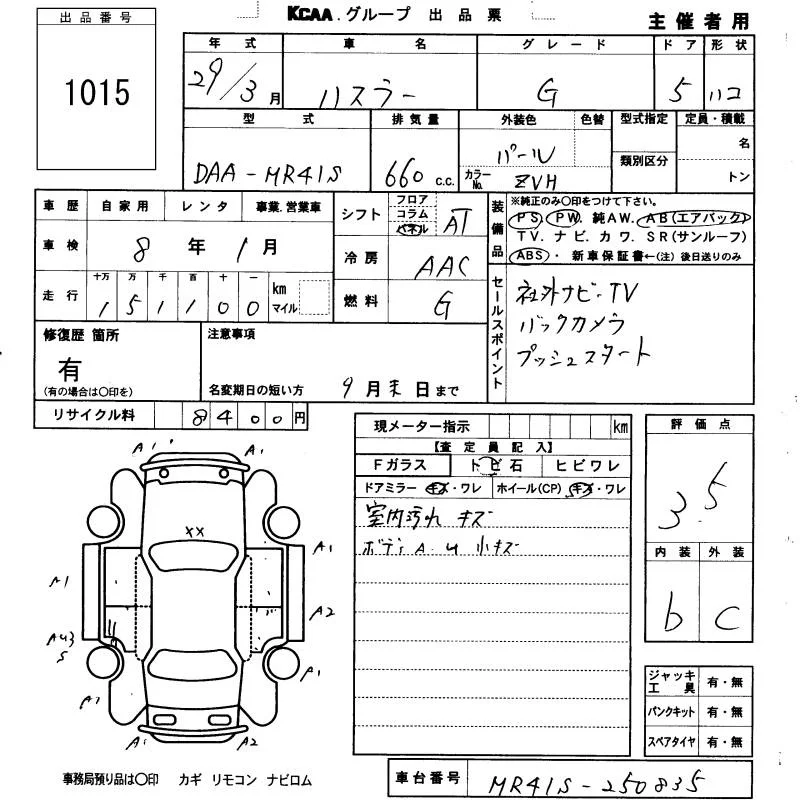 出品番号
1015
KCAA.グループ 出品票
主催者用
年式 車名 グレード ドア 形状
29/3月 ハスラー G 5 ハコ
型式 排気量 外装色 色替 型式指定 定員・積載
DAA-MR41S 660 C.C. パール
カラーNo. ZVH
類別区分
名
トン
車歴 自家用 レンタ 事業.営業車
車検 8年1月
走行 十万 万 千 百 十 一
151100 km マイル
シフト フロア コラム パネル AT
冷房 AAC
燃料 G
装備品
※純正のみ○印をつけて下さい。
PS. PW. 純AW. AB(エアバック)
TV. ナビ. カワ. SR(サンルーフ)
ABS・ 新車保証書←(注)後日送りのみ
セールスポイント
社外ナビ・TV
バックカメラ
プッシュスタート
修復歴 箇所
有
(有の場合は○印を)
注意事項
名変期日の短い方 9月末日まで
リサイクル料 8400円
現メーター指示 km
【査定員記入】
Fガラス トビ石 ヒビワレ
ドアミラー キズ・ワレ ホイール(CP) キズ・ワレ
室内汚れ キズ
ボディA.U小キズ
評価点
3.5
内装 外装
b C
ジャッキ工具 有・無
パンクキット 有・無
スペアタイヤ 有・無
A1 A1
XX
A1
A1 A2
AU3
S
A1 A1
A1 A2
事務局預り品は○印 カギ リモコン ナビロム
車台番号 MR41S-250835